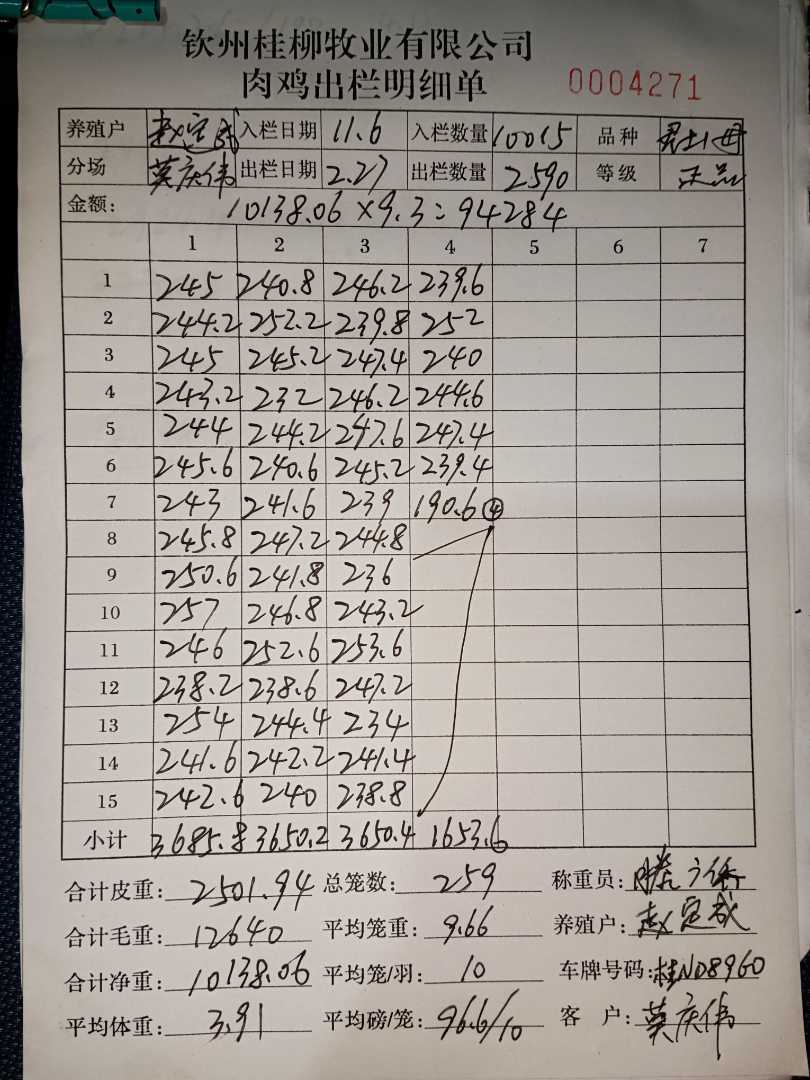 钦州桂柳牧业有限公司
肉鸡出栏明细单 0004271
养殖户 赵定成 入栏日期 11.6 入栏数量 10015 品种
分场 莫庆伟 出栏日期 2.27 出栏数量 2590 等级 正品
金额: 10138.06×9.3=94284
1 2 3 4 5 6 7
1 245 240.8 246.2 239.6
2 244.2 252.2 239.8 252
3 245 245.2 247.4 240
4 243.2 232 246.2 244.6
5 244 244.2 247.6 247.4
6 245.6 240.6 245.2 239.4
7 243 241.6 239 190.6 ④
8 245.8 247.2 244.8
9 250.6 241.8 236
10 257 246.8 243.2
11 246 252.6 253.6
12 238.2 238.6 247.2
13 254 244.4 234
14 241.6 242.2 241.4
15 242.6 240 238.8
小计 3685.8 3650.2 3650.4 1653.6
合计皮重: 2501.94 总笼数: 259 称重员:
合计毛重: 12640 平均笼重: 9.66 养殖户: 赵定成
合计净重: 10138.06 平均笼/羽: 10 车牌号码: 桂ND8960
平均体重: 3.91 平均磅/笼: 96.6/10 客 户: 莫庆伟